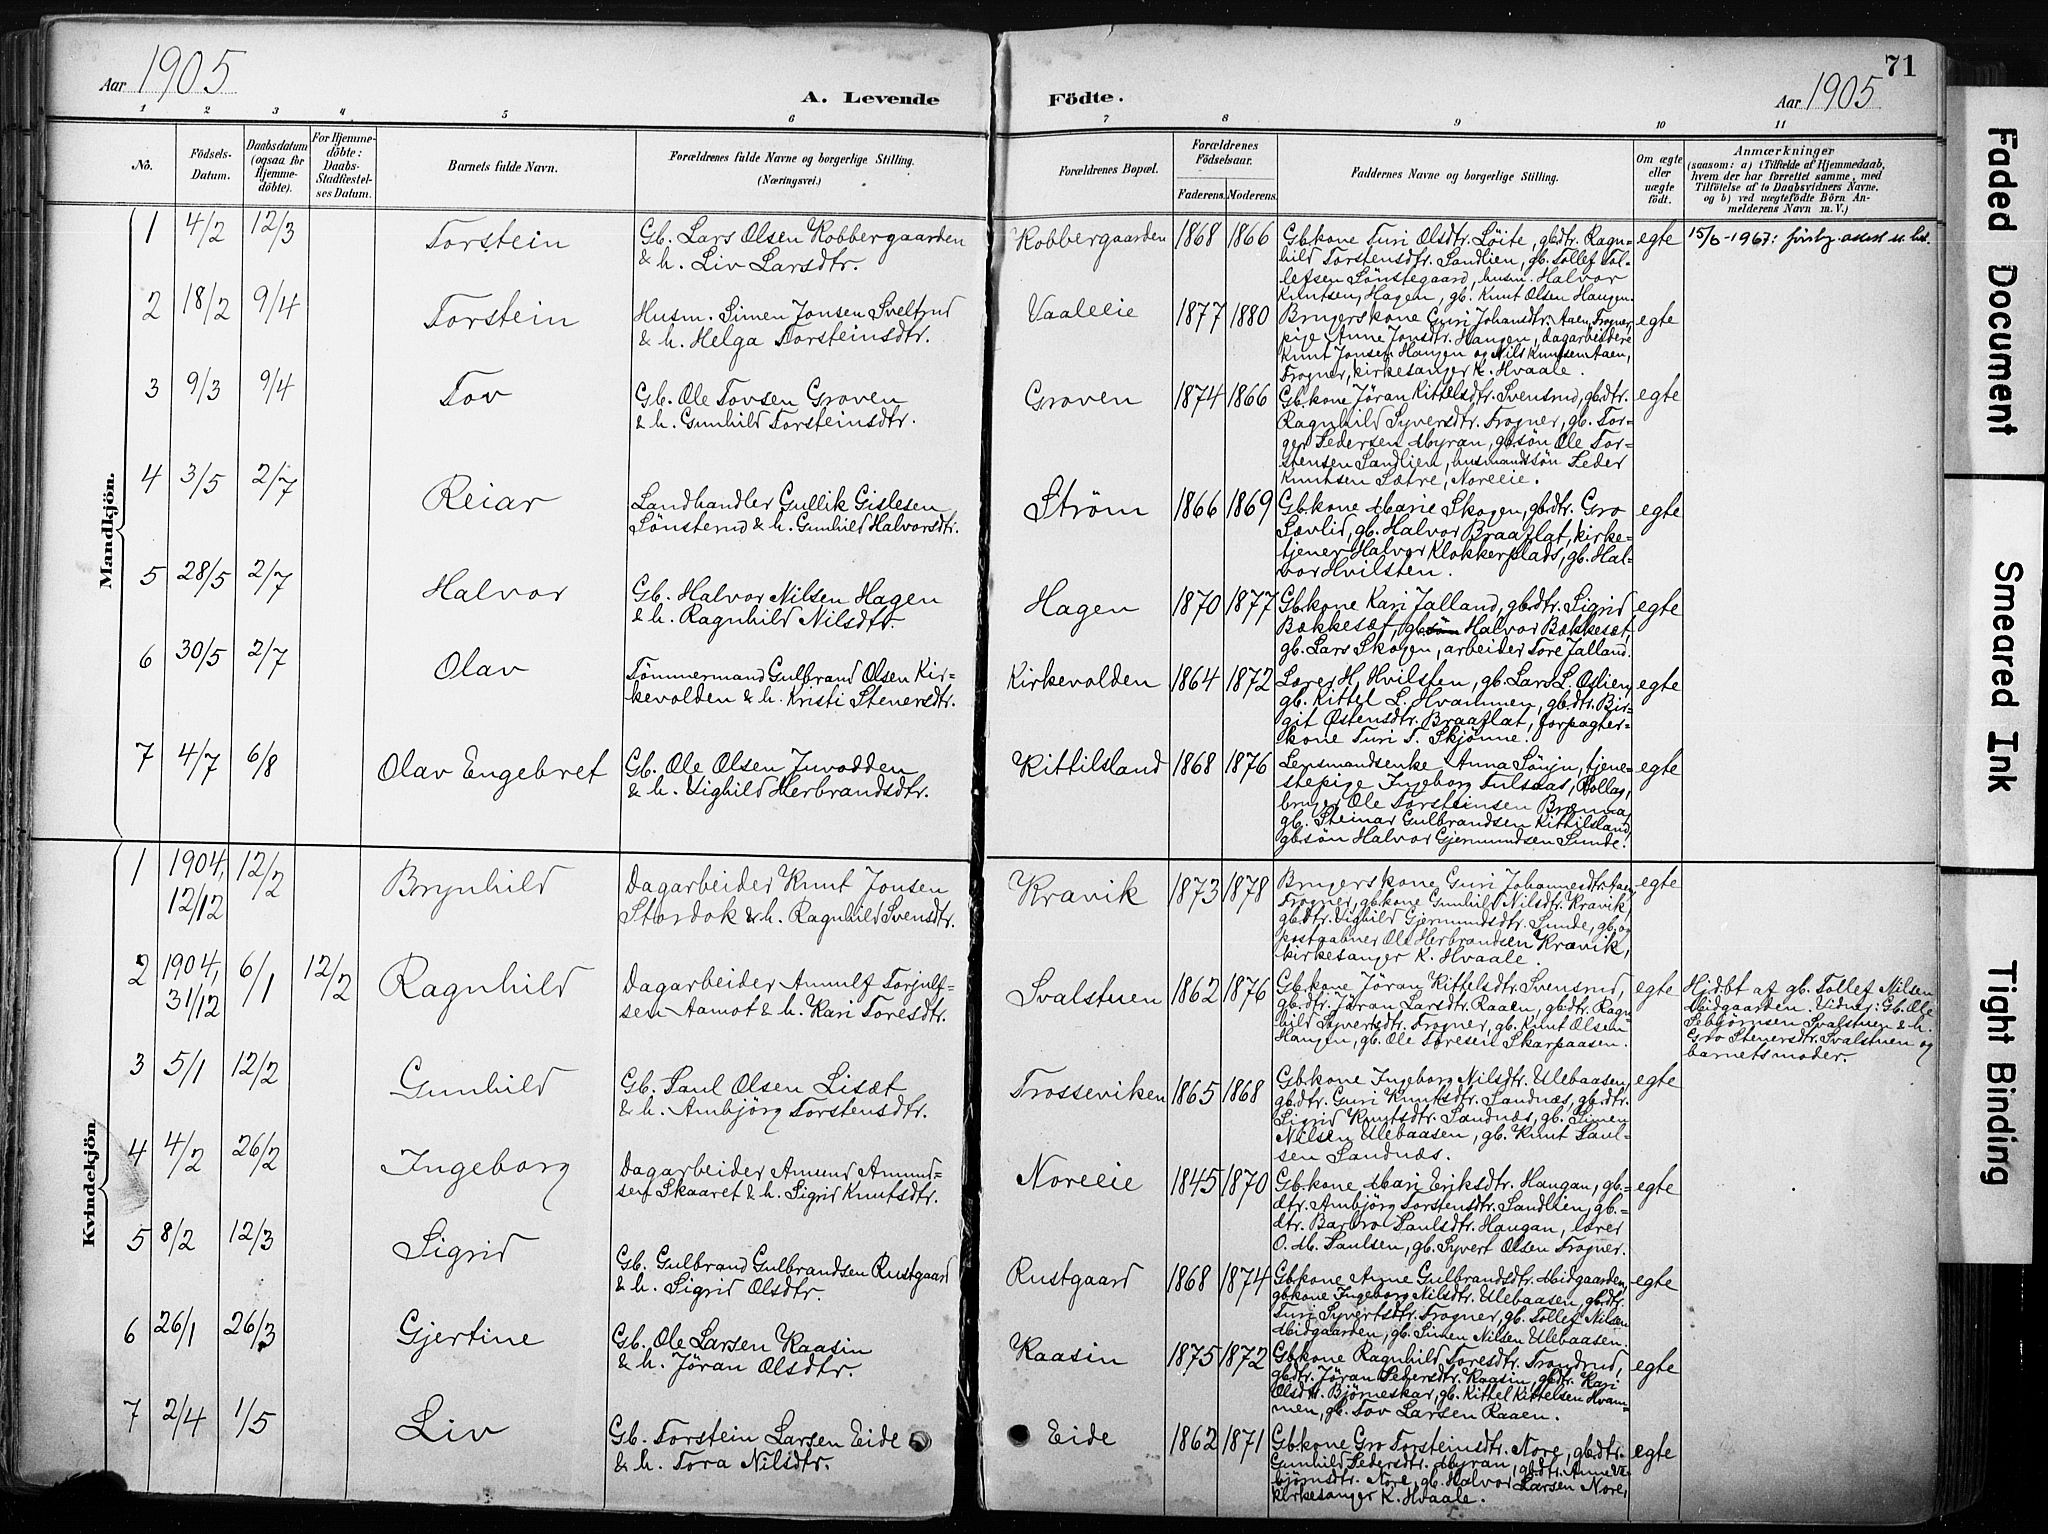 Aar 1905
A. Levende Födte.
Aar 1905
71
1 2 3 4 5 6 7 8 9 10 11
No.
Födsels-
Datum.
Daabsdatum
(ogsaa for
Hjemme-
döbte).
For Hjemme-
döbte:
Daabs-
Stadfæstel-
ses Datum.
Barnets fulde Navn.
Forældrenes fulde Navne og borgerlige Stilling.
(Næringsvei.)
Forældrenes Bopæl.
Forældrenes
Födselsaar.
Faderens. Moderens.
Faddernes Navne og borgerlige Stilling.
Om ægte
eller
uægte
födt.
Anmærkninger
(saasom: a) i Tilfælde af Hjemmedaab,
hvem der har forrettet samme, med
Tilföielse af to Daabsvidners Navne.
og b) ved uægtefödte Börn An-
melderens Navn m. V.)
Mandkjön.
1 4/2 12/3 Torstein
Gb. Lars Olsen Kobbergaarden
& h. Liv Larsdtr.
Kobbergaarden 1868 1866
Gbkone Turi Olsdtr. Löite, gbdtr. Ragn-
hild Torstensdtr. Sandlien, gb. Tollef Tol-
lefsen Sönstegaard, husm. Halvor
Knutsen, Hagen, gb. Knut Olsen Haugen.
egte
15/6-1967:
2 18/2 9/4 Torstein
Husm. Simen Jonsen Sveltrud
& h. Helga Torsteinsdtr.
Vaaleeie 1877 1880
Brugerskone Guri Johansdtr. Aaen, Frogner,
pige Anne Jonsdtr. Haugen, dagarbeidere
Knut Jonsen Haugen og Nils Knutsen Aaen,
Frogner, kirkesanger K. Hvaale.
egte
3 9/3 9/4 Tov
Gb. Ole Tovsen Groven
& h. Gunhild Torsteinsdtr.
Groven 1874 1866
Gbkone Jöran Kittelsdtr. Svensrud, gbdtr.
Ragnhild Syversdtr. Frogner, gb. Tor-
ger Pedersen Myran, gbsön Ole Tor-
stensen Sandlien, husmandssön Peder
Knutsen Sætre, Noreeie.
egte
4 3/5 2/7 Reiar
Landhandler Gullik Gislesen
Sönsterud & h. Gunhild Halvorsdtr.
Ström 1866 1869
Gbkone Marie Skogen, gbdtr. Gro
Sævlid, gb. Halvor Braaflat, kirke-
tjener Halvor Klokkerplads, gb. Hal-
vor Hvilsten.
egte
5 28/5 2/7 Halvor
Gb. Halvor Nilsen Hagen
& h. Ragnhild Nilsdtr.
Hagen 1870 1877
Gbkone Kari Jalland, gbdtr. Sigrid
Bækkesæt, gbsön Halvor Bækkesæt,
gb. Lars Skogen, arbeider Tore Jalland.
egte
6 30/5 2/7 Olav
Tömmermand Gulbrand Olsen Kir-
kevolden & h. Kristi Stenersdtr.
Kirkevolden 1864 1872
Lærer H. Hvilsten, gb. Lars L. Oslien,
gb. Kittel L. Hvammen, gbdtr. Bir-
git Ostensdtr. Braaflat, forpagter-
kone Turi T. Skjönne.
egte
7 4/7 6/8 Olav Engebret
Gb. Ole Olsen Juvodden
& h. Vighild Herbrandsdtr.
Kittilsland 1868 1876
Lensmandsenke Anna Sönju, tjene-
stepige Ingeborg Tulsaas, Rollag,
bruger Ole Torsteinsen Bremma,
gb. Steinar Gulbrandsen Kittilsland,
gbsön Halvor Gjermundsen Sunde.
egte
Kvindekjön
1 1904, 12/12 12/2 Brynhild
Dagarbeider Knut Jonsen
Stordok & h. Ragnhild Svensdtr.
Kravik 1873 1878
Brugerskone Guri Johannesdtr. Aaen,
Frogner, gbkone Gunhild Nilsdtr. Kravik,
gbdtr. Vighild Gjermundsdtr. Sunde, gb. og
postaabner Ole Herbrandsen Kravik,
kirkesanger K. Hvaale.
egte
2 1904, 31/12 6/1 12/2 Ragnhild
Dagarbeider Annulf Torjulf-
sen Aamot & h. Kari Toresdtr.
Svalstuen 1862 1876
Gbkone Jöran Kittelsdtr. Svensrud,
gbdtr. Jöran Larsdtr. Raaen, gbdtr. Ragn-
hild Syvertsdtr. Frogner, gb. Knut Olsen
Haugen, gb. Ole Toresen Skarpaasen.
egte
Hjdbt af gb. Tollef Nilsen
Midgaarden. Vidner: Gb. Ole
Asbjörnsen Svalstuen & h.
Gro Stenersdtr. Svalstuen og
barnets moder.
3 5/1 12/2 Gunhild
Gb. Paul Olsen Lisæt
& h. Ambjörg Torstensdtr.
Trosseviken 1865 1868
Gbkone Ingeborg Nilsdtr. Ulebaasen,
gbdtr. Guri Knutsdtr. Sandnæs, gbdtr.
Sigrid Knutsdtr. Sandnæs, gb. Simen
Nilsen Ulebaasen, gb. Knut Paul-
sen Sandnæs.
egte
4 4/2 26/2 Ingeborg
Dagarbeider Amund Amund-
sen Skaaret & h. Sigrid Knutsdtr.
Noreeie 1845 1870
Gbkone Mari Eriksdtr. Haugan, gb.-
dtr. Ambjörg Torstensdtr. Sandlien, gb.-
dtr. Barbro Paulsdtr. Haugan, lærer
O. M. Paulsen, gb. Syvert Olsen Frogner.
egte
5 8/2 12/3 Sigrid
Gb. Gulbrand Gulbrandsen Rustgaard
& h. Sigrid Olsdtr.
Rustgaard 1868 1874
Gbkone Anne Gulbrandsdtr. Midgaarden,
gbkone Ingeborg Nilsdtr. Ulebaasen, gbdtr.
Turi Syvertsdtr. Frogner, gb. Tollef Nilsen
Midgaarden, gb. Simen Nilsen Ulebaasen.
egte
6 26/1 26/3 Gjertine
Gb. Ole Larsen Kaasin
& h. Jöran Olsdtr.
Kaasin 1875 1872
Gbkone Ragnhild Toresdtr. Trondrud,
gbdtr. Jöran Pedersdtr. Kaasin, gbdtr. Kari
Olsdtr. Björneskar, gb. Kittel Kittelsen Hvam-
men, gb. Tov Larsen Raaen.
egte
7 2/4 1/5 Liv
Gb. Torstein Larsen Eide
& h. Tora Nilsdtr.
Eide 1862 1871
Gbkone Gro Torsteinsdtr. Nore, gbdtr.
Gunhild Pedersdtr. Myran, gbdtr. Anne
björnsdtr. Nore, gb. Halvor Larsen Nore,
kirkesanger K. Hvaale.
egte
Faded Document
Smeared Ink
Tight Binding